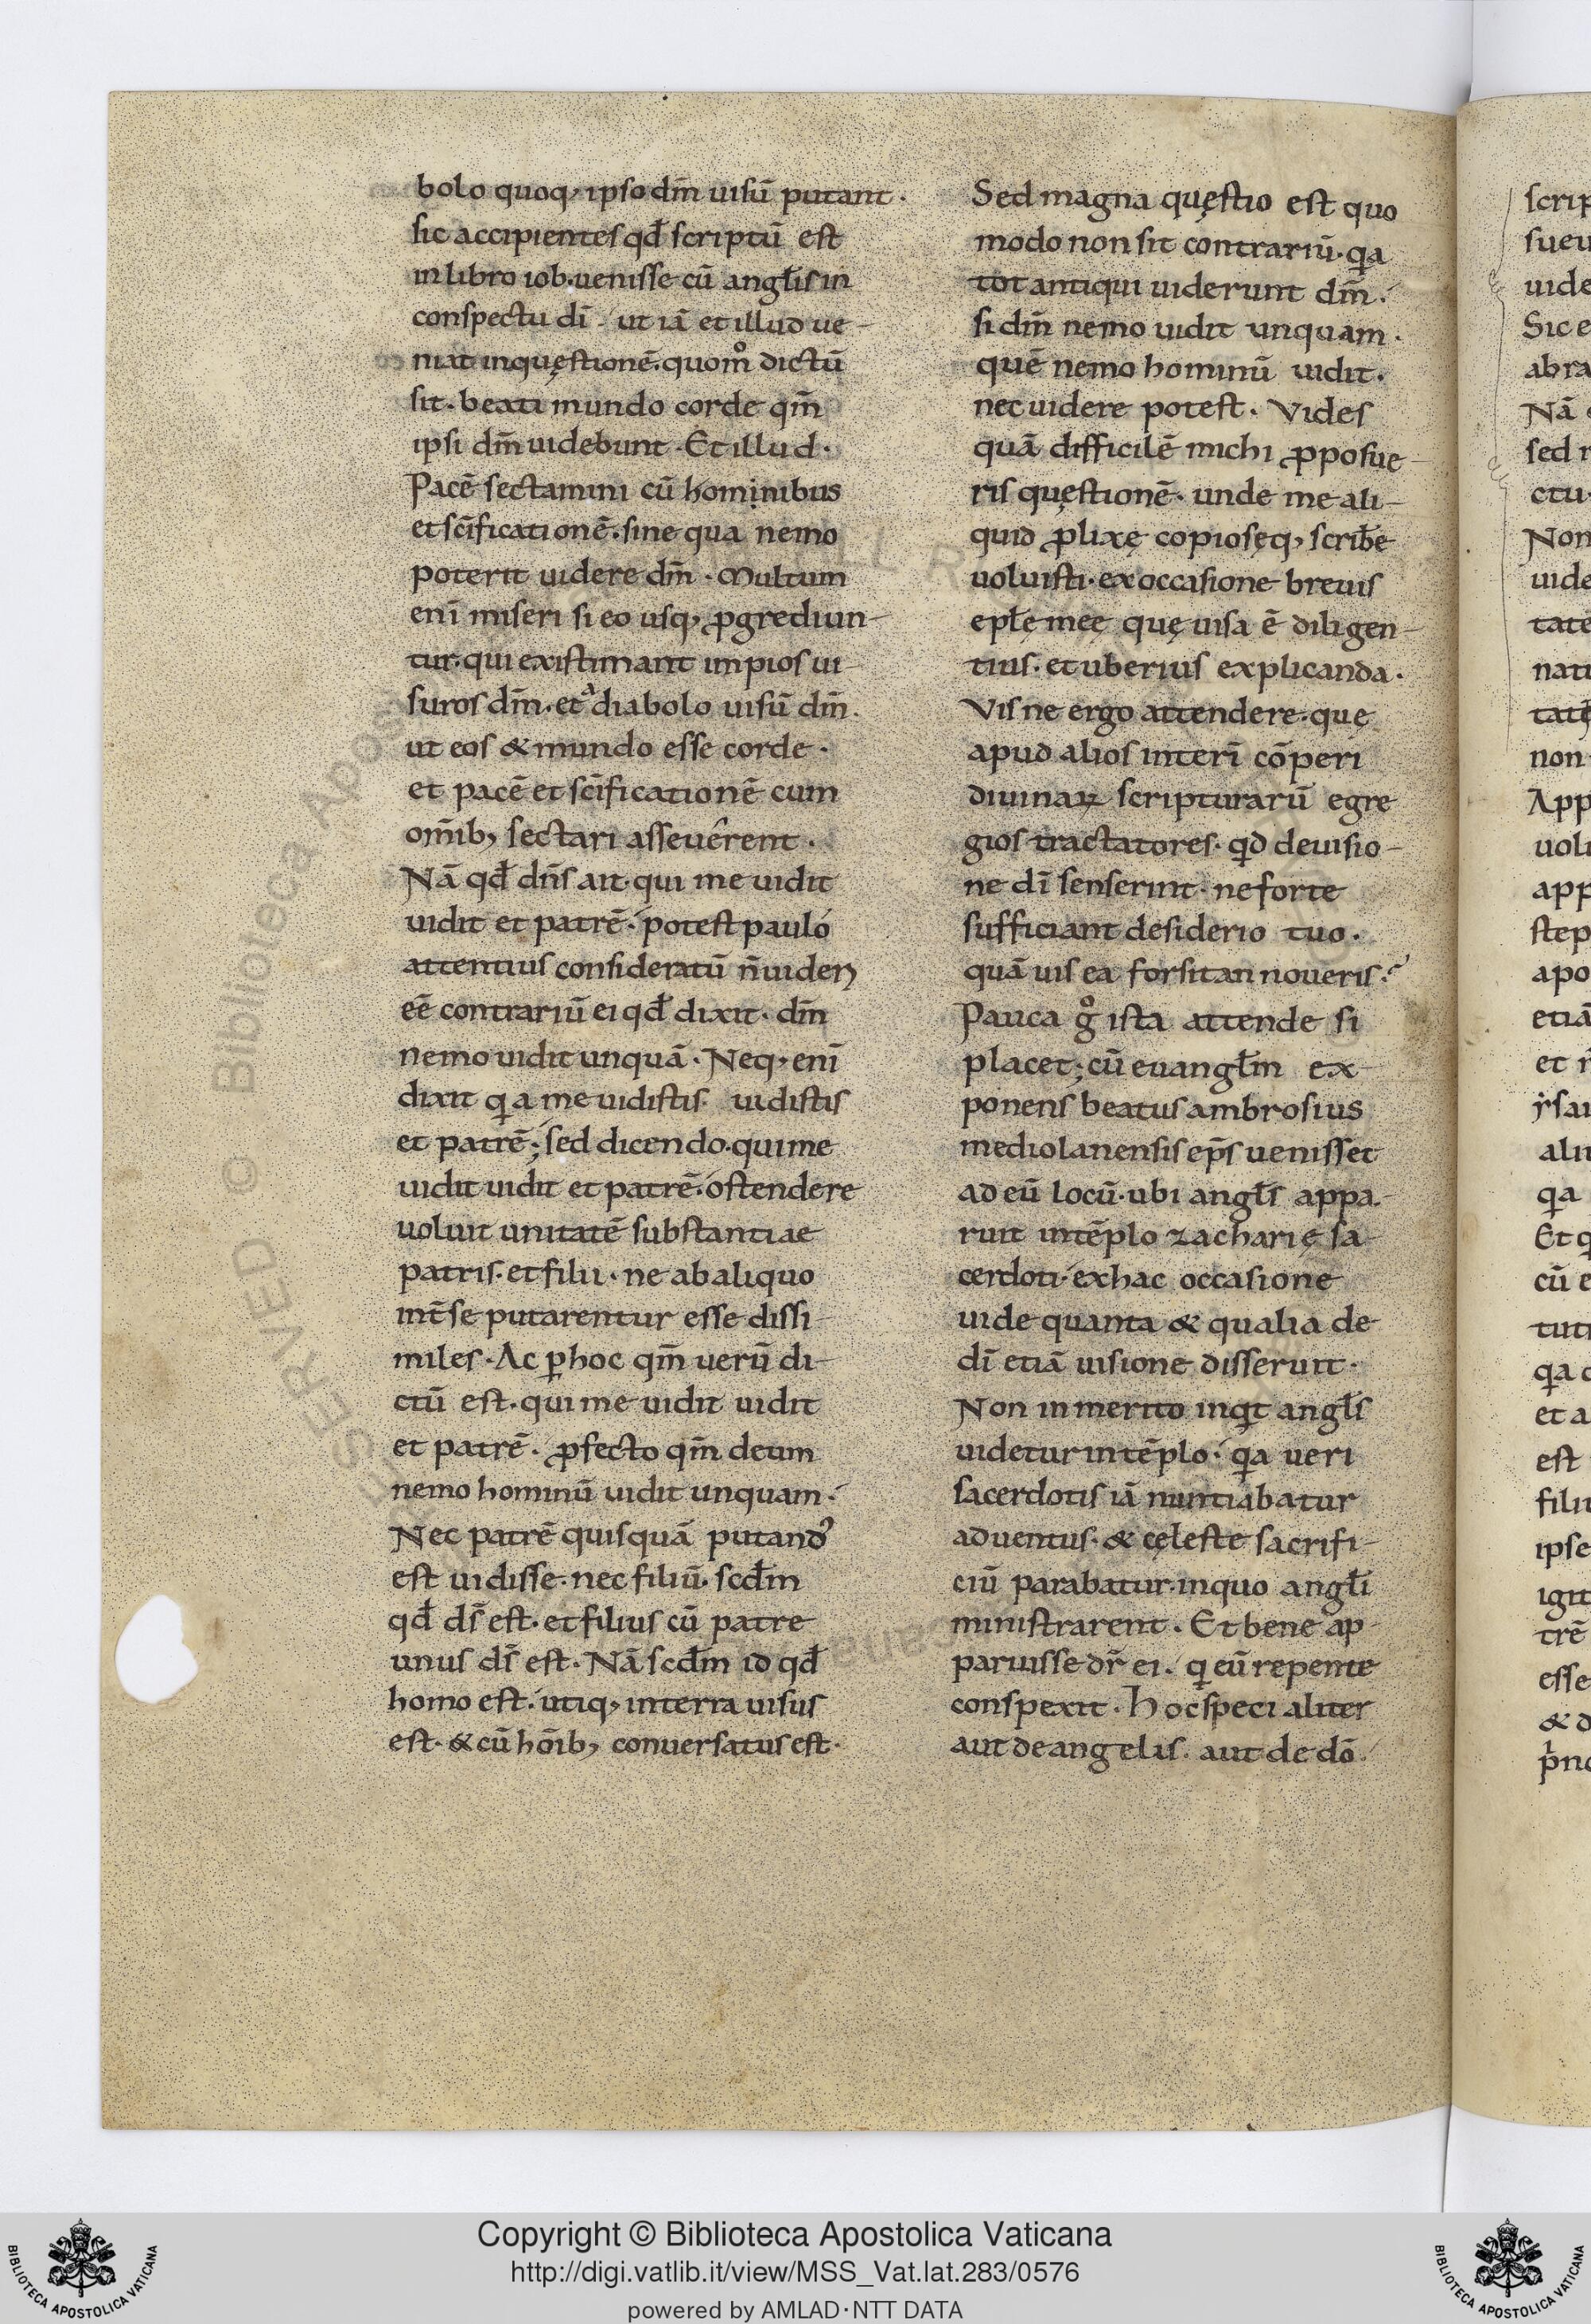 bolo quoq, ipso dm̄ uisū putant.
sic accipientes qđ scriptū est
in libro iob. uenisse cū angłis in
conspectu dī. ut iā et illud ue-
niat in quęstionē. quom̊ dictū
sit. beati mundo corde qm̄
ipsi dm̄ uidebunt. Et illud.
Pacē sectamini cū hominibus
et scīficationē. sine qua nemo
poterit uidere dm̄. Multum
enī miseri si eo usq, ꝓgrediun-
tur. qui existimant impios ui-
suros dm̄. et a diabolo uisū dm̄.
ut eos & mundo esse corde.
et pacē et scīficationē cum
om̄ib, sectari asseuêrent.
Nā qđ dn̄s ait. qui me uidit
uidit et patrē. potest pauló
attentius consideratū n̄ uideri
eē contrariū ei qđ dixit. dm̄
nemo uidit unquā. Neq, enī
dixit qa me uidistis uidistis
et patrē; sed dicendo. qui me
uidit uidit et patrē. ostendere
uoluit unitatē substantiae
patris. et filii. ne ab aliquo
int̄ se putarentur esse dissi-
miles. Ac ꝑ hoc qm̄ uerū di-
ctū est. qui me uidit uidit
et patrē. ꝓfecto qm̄ deum
nemo hominū uidit unquam.
Nec patrē quisquā putand᾿
est uidisse. nec filiū. scđm
qđ ds̄ est. et filius cū patre
unus ds̄ est. Nā scđm id qđ
homo est. utiq, in terra uisus
est. & cū hōib, conuersatus est.
Sed magna quęstio est quo
modo non sit contrariū. qa
tot antiqui uiderunt dm̄.
si dm̄ nemo uidit unquam.
quē nemo hominū uidit.
nec uidere potest. Vides
quā difficilē michi ꝓposue-
ris quęstionē. unde me ali-
quid ꝓlixę copiosęq, scribe
uoluisti. ex occasione breuis
epłę meę quę uisa ē diligen-
tius. et uberius explicanda.
Vis ne ergo attendere. quę
apud alios interī cōperi
diuinaꝝ scripturarū egre
gios tractatores. qd de uisio-
ne dī senserint. ne forte
sufficiant desiderio tuo.
quā uis ea forsitan noueris.
Pauca g̊ ista attende si
placet; cū euangłm ex-
ponens beatus ambrosius
mediolanensis eps̄ uenisset
ad eū locū. ubi angłs appa-
ruit in tēplo zacharię sa-
cerdoti. ex hac occasione
uide quanta & qualia de
dī etiā uisione disseruit.
Non in merito inqt angłs
uidetur in tēplo. qa ueri
sacerdotis iā nuntiabatur
aduentus. & cęleste sacrifi-
ciū parabatur. in quo angłi
ministrarent. Et bene ap-
paruisse dr̄ ei. q eū repente
conspexit. Hoc specialiter
aut de angelis. aut de dō.
Copyright © Biblioteca Apostolica Vaticana
http://digi.vatlib.it/view/MSS_Vat.lat.283/0576
powered by AMLAD·NTT DATA